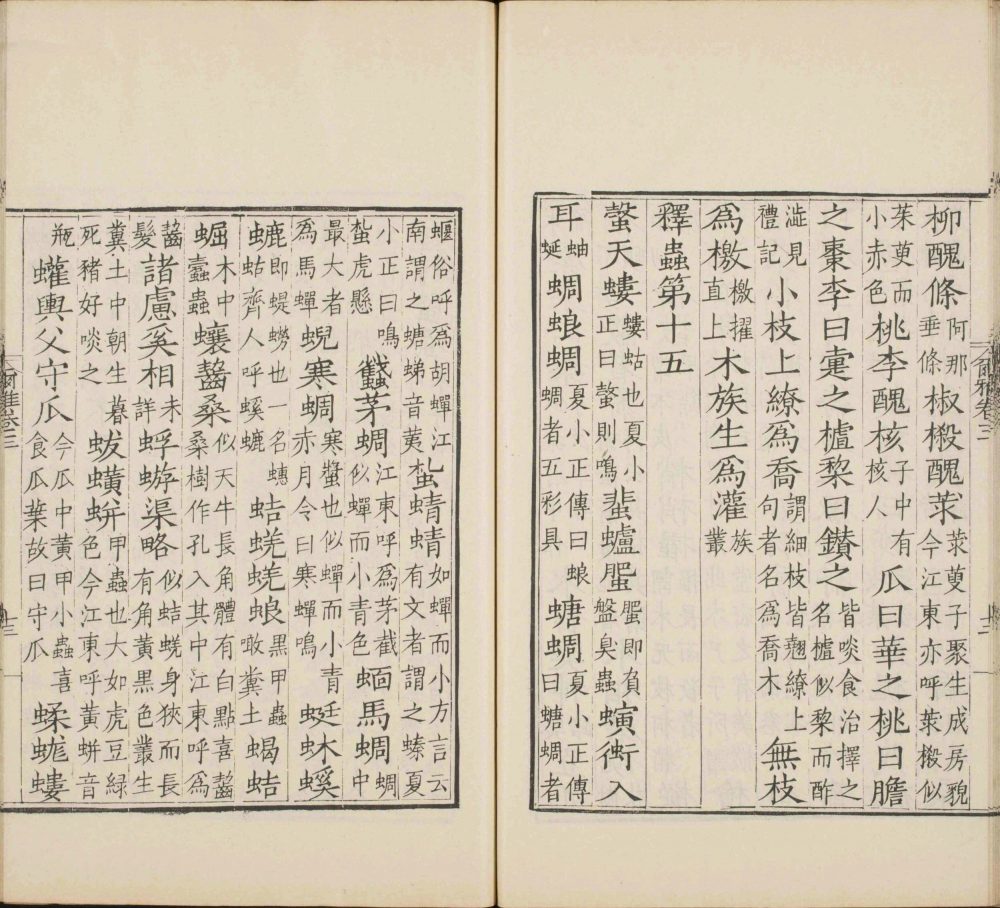 柳醜條阿那垂條椒樧醜莍莍萸子聚生成房貌今江東亦呼莍樧似
茱萸而小赤色桃李醜核子中有核人瓜曰華之桃曰膽
之棗李曰疐之樝棃曰鑽之皆啖食治擇之名樝似棃而酢
澁見禮記小枝上繚爲喬謂細枝皆翹繚上句者名爲喬木無枝
爲檄檄擢直上木族生爲灌族叢
釋蟲第十五
螜天螻螻蛄也夏小正曰螜則鳴蜚蠦蜰蜰即負盤臭蟲螾入
耳蚰蜒蜩蜋蜩夏小正傳曰蜋蜩者五彩具螗蜩夏小正傳曰螗蜩者
蝘俗呼爲胡蟬江南謂之螗蛦音荑蚻蜻蜻如蟬而小方言云有文者謂之螓夏
小正曰鳴蚻虎懸蠽茅蜩江東呼爲茅截似蟬而小青色蝒馬蜩蜩中
最大者爲馬蟬蜺寒蜩寒螿也似蟬而小青赤月令曰寒蟬鳴蜓蚞螇
螰即蝭蟧也一名蟪蛄齊人呼螇螰蛣蜣蜣蜋黑甲蟲噉糞土蝎蛣
蝠木中蠹蟲蠰齧桑似天牛長角體有白點喜齧桑樹作孔入其中江東呼爲
齧髮諸慮奚相未詳蜉蝣渠略似蛣蜣身狹而長有角黃黑色叢生
糞土中朝生暮死豬好啖之蛂蟥蛢甲蟲也大如虎豆綠色今江東呼黃蛢音
瓶蠸輿父守瓜今瓜中黃甲小蟲喜食瓜葉故曰守瓜蝚蛖螻